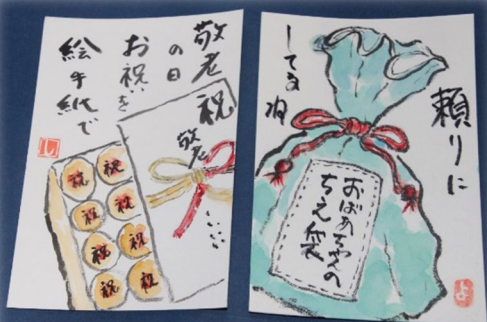 敬老
の日
お祝いを
絵手紙で
祝
敬老
祝
祝
祝
祝
祝
祝
祝
祝
頼りに
してるね
おばあちゃんの
ちえ袋